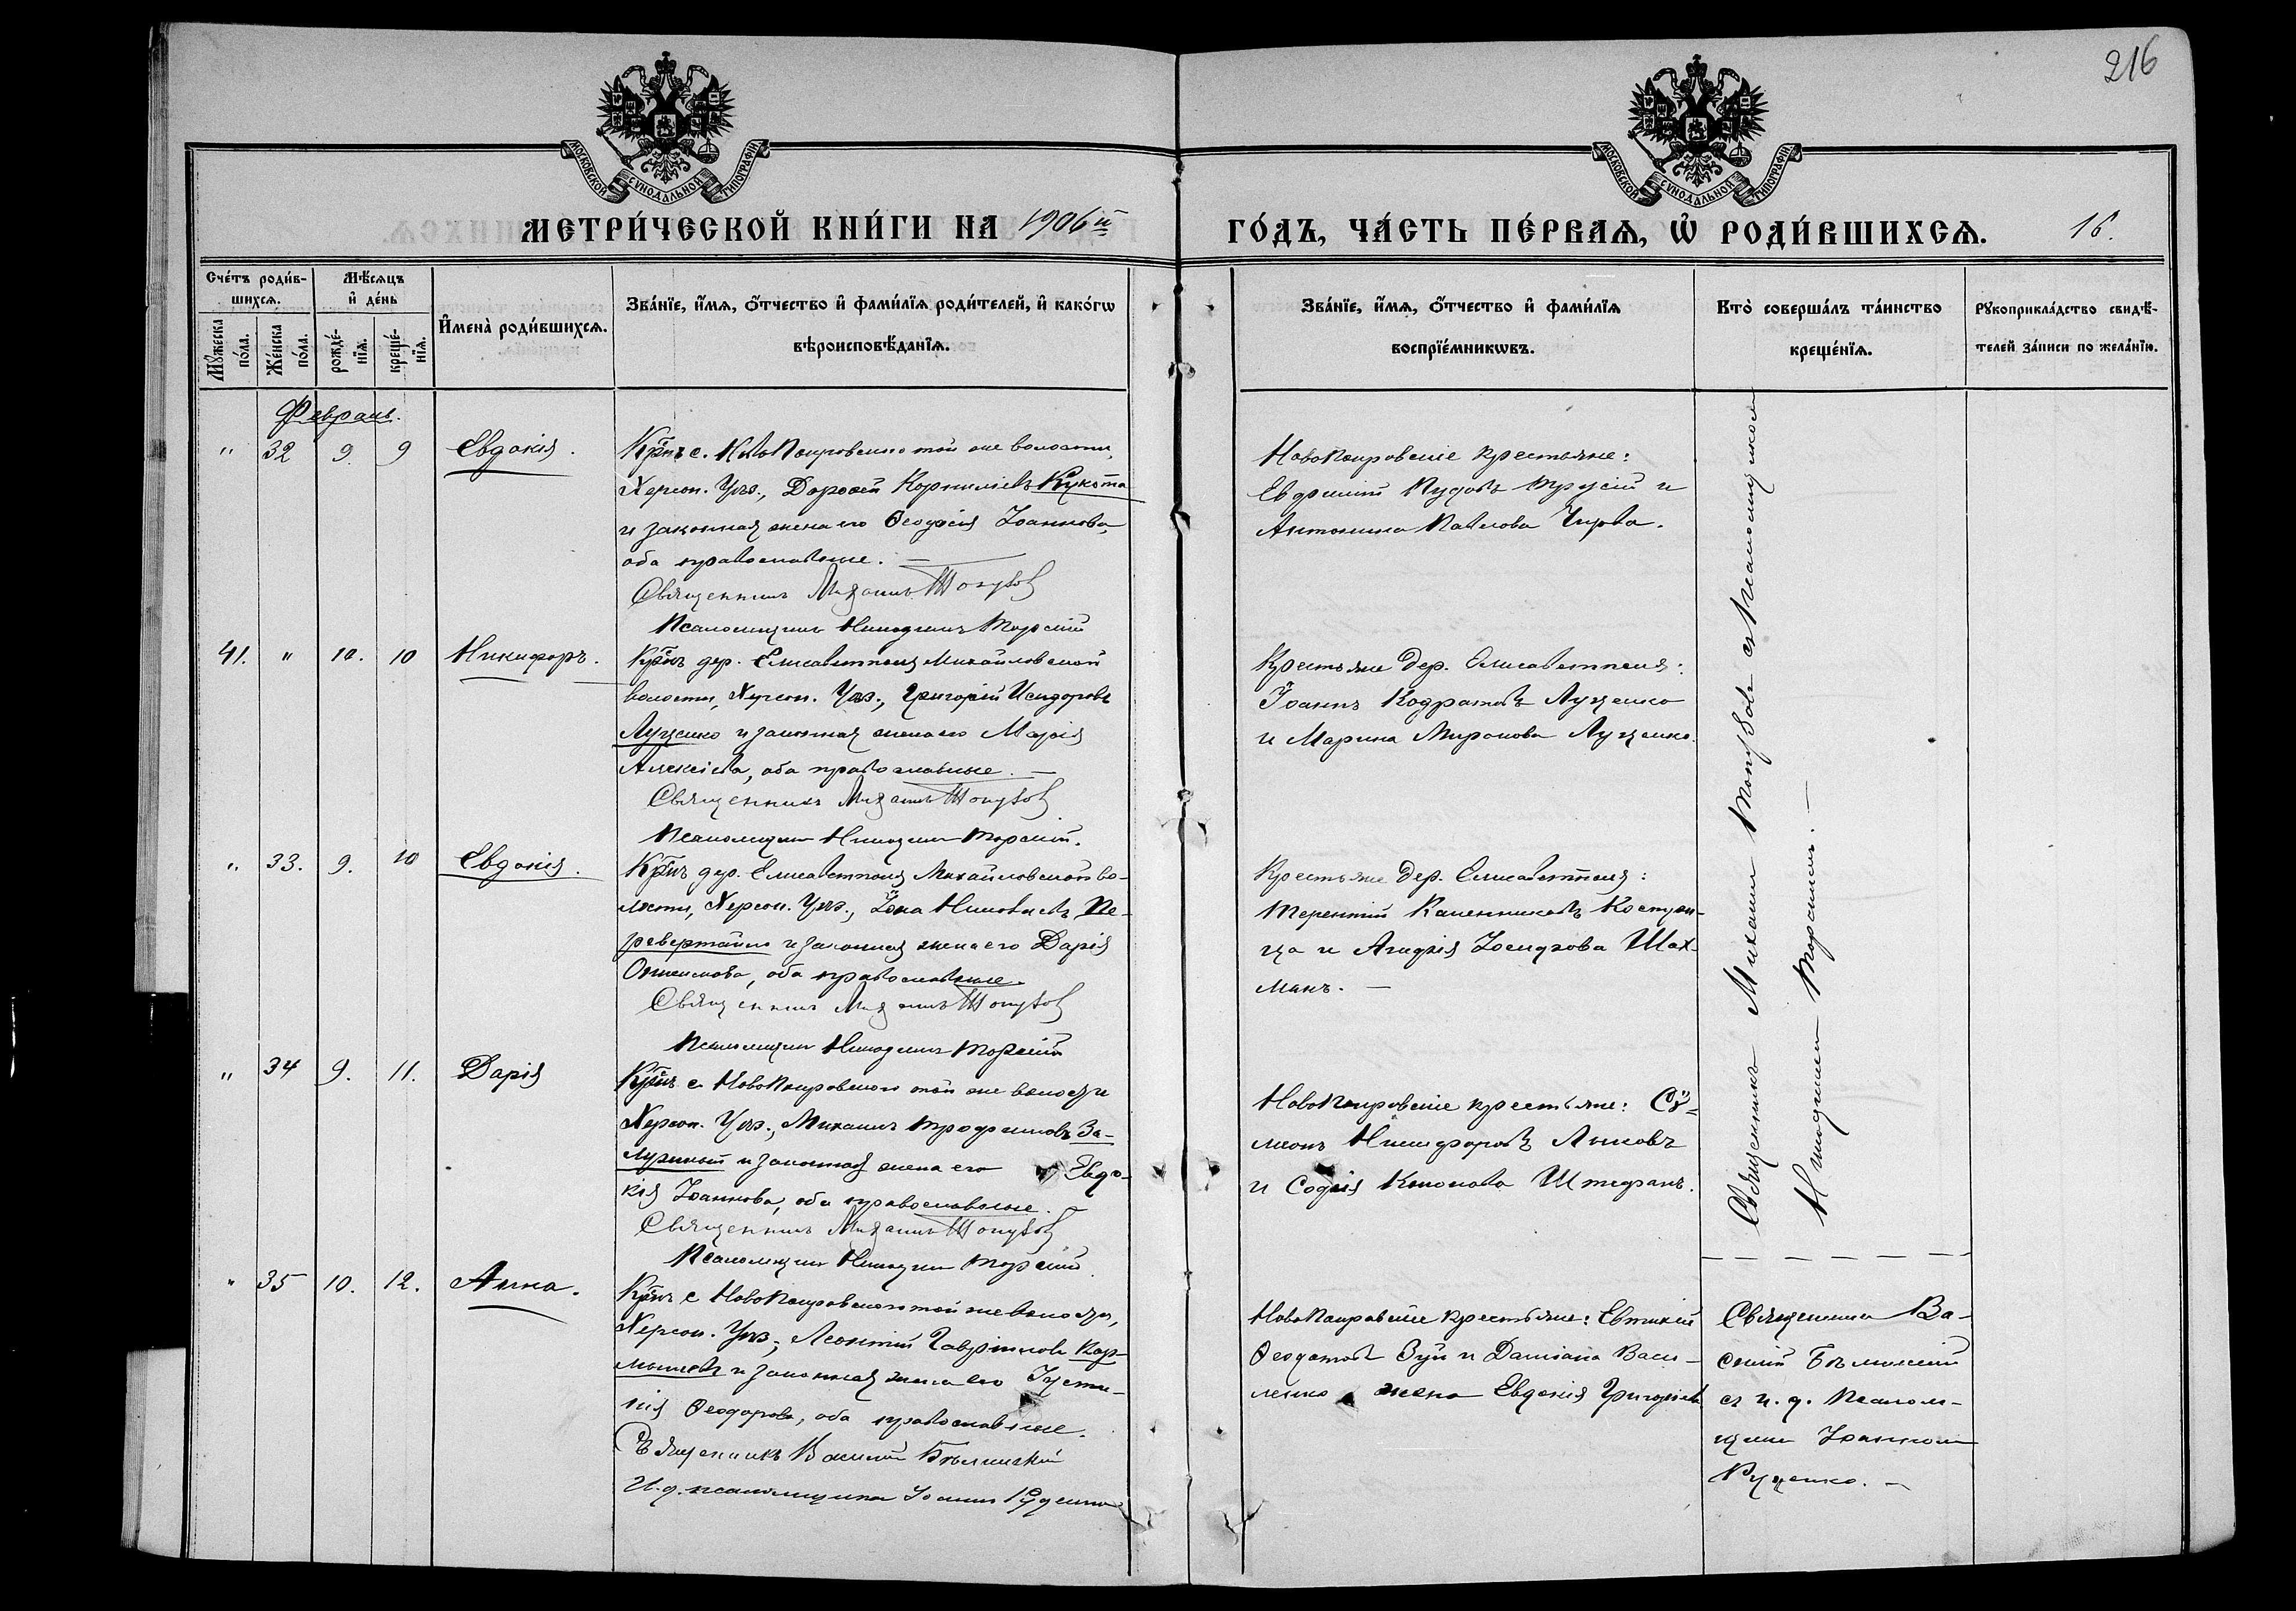 216
МОСКОВСКОЙ СѴНОДАЛЬНОЙ ТИПОГРАФІИ
МОСКОВСКОЙ СѴНОДАЛЬНОЙ ТИПОГРАФІИ
МЕТРИ́ЧЕСКОЙ КНИ́ГИ НА 1906й
ГО́ДЪ, ЧА́СТЬ ПЕ́РВАѦ, Ѽ РОДИ́ВШИХСѦ. 16.
Сче́тъ роди́в-
шихсѧ.
Мꙋ́жеска
по́ла.
Же́нска
по́ла.
Мѣ́сѧцъ
и҆ де́нь
рожде́-
нїѧ.
креще́-
нїѧ.
И҆мена̀ роди́вшихсѧ.
Зва́нїе, и҆́мѧ, ѻ҆́тчество и҆ фами́лїѧ роди́телей, и҆ како́гѡ
вѣроисповѣ́данїѧ.
Зва́нїе, и҆́мѧ, ѻ҆́тчество и҆ фами́лїѧ
воспрїе́мникѡвъ.
Кто̀ соверша́лъ та́инство
креще́нїѧ.
Рꙋкоприкла́дство свидѣ́-
телей за́писи по жела́нїю.
Февраль.
" 32 9. 9 Евдокія.
Кр-нъ с. НовоПокровскаго той же волости,
Херсон. Уѣз., Дорофей Корнилiевъ Кукота
и законная жена его Ѳеодосія Іоаннова,
оба православные. —
Священникъ Михаилъ
Псаломщикъ Никодимъ Торскій
Новопокровскіе крестьяне:
Евфимій Пудовъ и
Антонина Павлова Чирва.
41. " 10. 10 Никифоръ.
Кр-нъ дер. Елисаветполя Михайловской
волости, Херсон. Уѣз., Григорій Исидоровъ
Луценко и законная жена его Марія
Алексіева, оба православные. —
Священникъ Михаилъ
Псаломщикъ Никодимъ Торскій.
Крестьяне дер. Елисаветполя:
Іоаннъ Кодратовъ Луценко
и Марина Миронова Луценко.
" 33. 9. 10 Евдокія.
Кр-нъ дер. Елисаветполя Михайловской во-
лости, Херсон. Уѣз., Іона Пе-
ревертайло и законная жена его Дарія
Онисимова, оба православные.
Священникъ Михаилъ
Псаломщикъ Никодимъ Торскій
Крестьяне дер. Елисаветполя:
Терентій Калинниковъ
ца и Іосифова Шах-
манъ. —
" 34 9. 11. Дарія
Кр-нъ с НовоПокровскаго той же волости
Херсон. Уѣз., Михаилъ Трофимовъ За-
и законная жена его Евдо-
кія Іоаннова, оба православные.
Священникъ Михаилъ
Псаломщикъ Никодимъ Торскій
НовоПокровскіе крестьяне: Сѵ-
меонъ Никифоровъ Лыковъ
и Софія Кононова Штефанъ.
Священникъ Михаилъ съ псаломщикомъ
Никодимомъ Торскимъ. —
" 35 10. 12. Анна.
Кр-нъ с НовоПокровскаго той же волости,
Херсон. Уѣз., Леонтій Гавріиловъ Кор-
и законная жена его Іусти-
нія Ѳеодорова, оба православные.
Священникъ Василій Бѣлинскій
И. д. псаломщика Іоаннъ Руденко
НовоПокровскіе крестьяне: Евтихій
Ѳеодотовъ Зуй и Даміана Васи-
ленко жена Евдокія Григоріева
Священникъ Ва-
силій Бѣлинскій
съ и. д. псалом-
щика Іоанномъ
Руденко. —